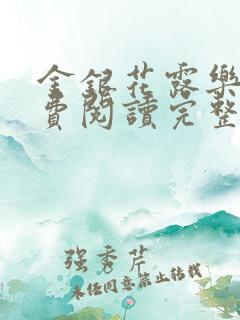 金銀花露樂
費閱讀完整
强秀芹
未经同意禁止转载